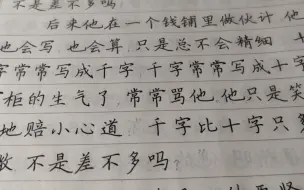 不是差不多吗
后来他在一个钱铺里做伙计 他
也会写 也会算 只是总不会精细 十
字常常写成千字 千字常常写成十字
柜的生气了 常常骂他 他只是笑
地赔小心道 千字比十字只
不是差不多吗?